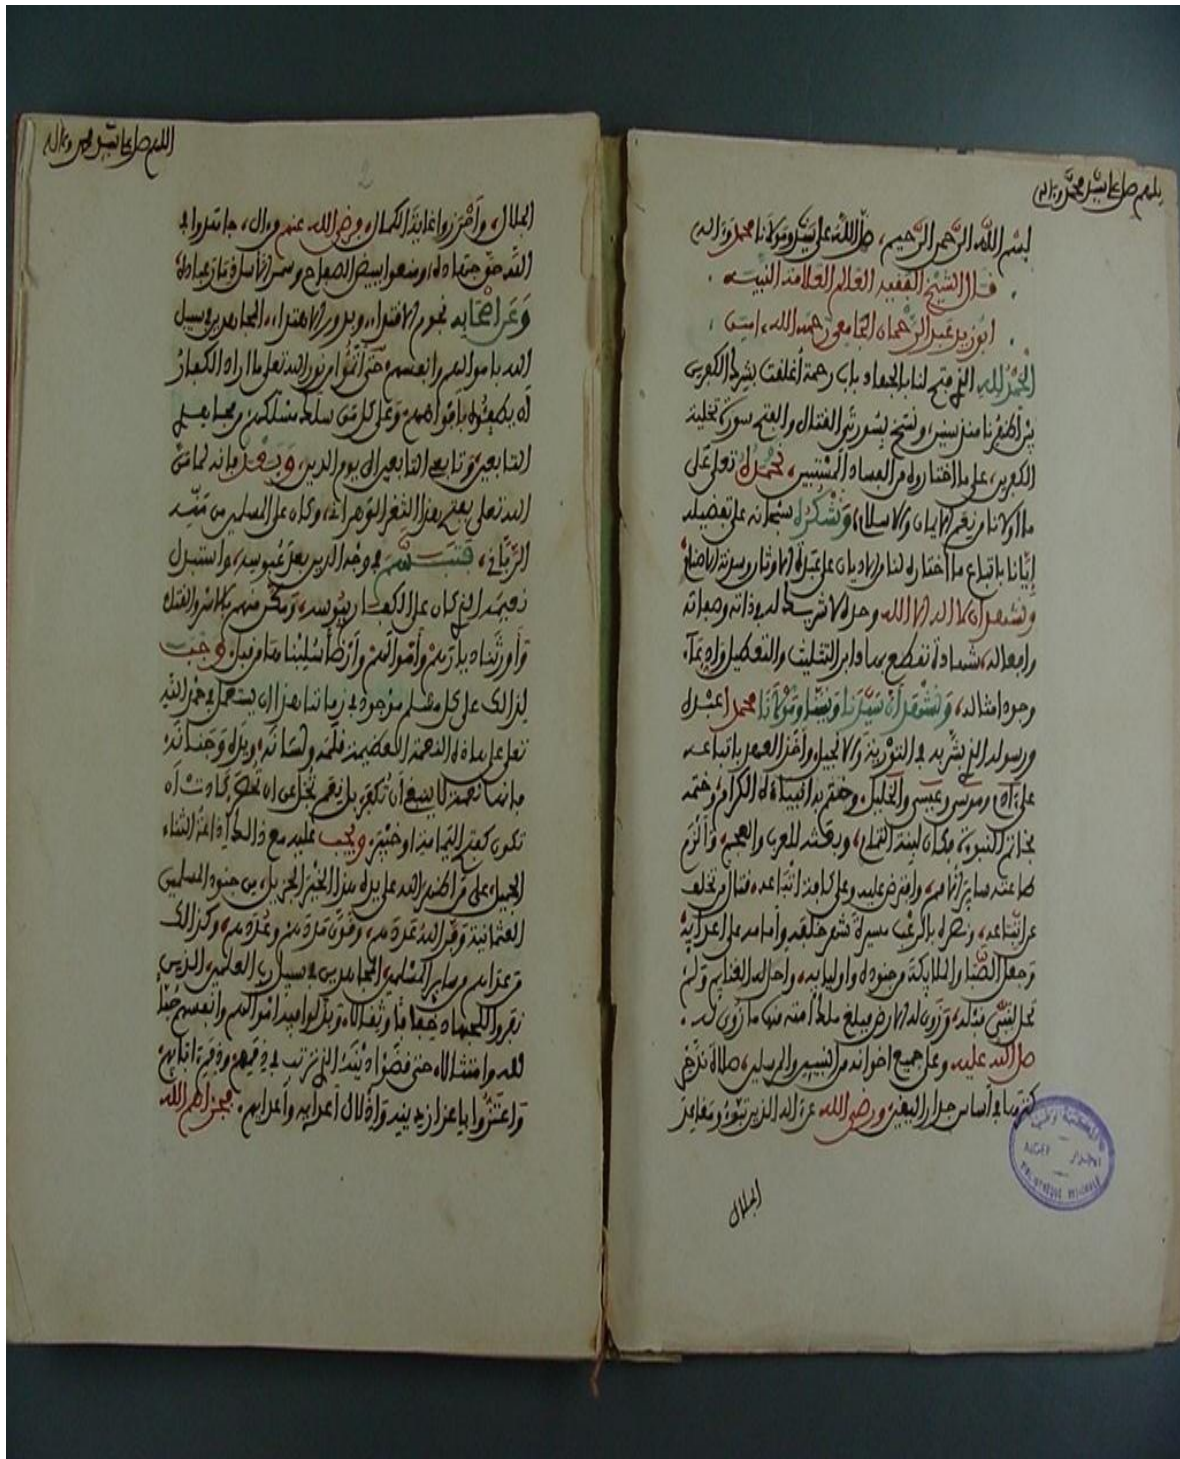 اللهم صل على سيدنا محمد وءاله
بسم الله الرحمن الرحيم، صلى الله على سيدنا ومولانا محمد وءاله
قال الشيخ الفقيه العالم العلامة النبيه
ابو زيد عبد الرحمان الجامعي رحمه الله، امين
الحمد لله الذي فتح لنا بالجهاد باب رحمة أغلقت بشرك الكفرين
من اظهرنا منذ سنين، ونسخ بسورتي القتال والفتح سورة تخلية
الكفرين، على ما اختاروه من الفساد المستبين، نحمده تعلى على
ما اولانا من نعم الايمان والاسلام، ونشكره سبحانه على تفضيله
إيانا باتباع ما اختاره لنا من الاديان على عبدة الاوثان وسدنة الاصنام
ونشهد ان لا اله الا الله وحده لا شريك له في ذاته وصفاته
وافعاله، شهادة نقطع بها دابر التثليث والتعطيل
وجود امثاله، ونشهد أن سيدنا ونبينا ومولانا محمدا عبده
ورسوله الذي بشر به في التورية والانجيل، وأخذ العهد باتباعه
على ءادم وموسى وعيسى والخليل، وختم به انبياءه الكرام، وختمه
بخاتم النبوة، فكان لبنة التمام، وبعثه للعرب والعجم، وألزم
طاعته ساير الامم، وافترض عليه وعلى كافة اتباعه، قتال من تخلف
عن اتباعه، ونصره بالرعب مسيرة شهر خلفه وأمامه على اعدايه
وجعل الصبا والملايكة من جنوده واوليايه، واحل له الغنايم ولم
تحل لنبي قبله، وزوى له الارض فيبلغ ملك أمته منها ما زوى له.
صلى الله عليه، وعلى جميع اخوانه من النبيين والمرسلين، صلاة ندخر
كنزها في أساس جدار اليقين، ورضي الله عن ءاله الذين تبوءوا مقاعد
الجلال
المكتبة الوطنية
الجزائر ALGER
BIBLIOTHEQUE NATIONALE
اللهم صل على سيدنا محمد وءاله
2
الجلال، وأحرزوا غاية الكمال، ورضي الله عنهم وءال، جاهدوا في
الله حق جهاده
وعن اصحابه نجوم الاقتداء، وبدور الاهتداء، المجاهدين في سبيل
الله باموالهم وانفسهم، حتى أتموا من نور الله تعلى ما اراد الكفار
ان يطفئوه بافواههم، وعلى كل من سلك مسلكهم
التابعين وتابعي التابعين الى يوم الدين، وبعد فانه لما من
الله تعلى بفتح هذا الثغر الوهراني، وكان على المسلمين من منته
الرباني، فتبسم في وجه الدين بعد عبوسه، واستبدل
نعيمه الذي كان على الكفار ببوسه، ومكن منهم بالاسر والفتك
وأورثناه ديارهم وأموالهم وأرضا سلبناها من قبل، وجب
لذالك على كل مسلم موجود في زماننا هذا ان يستعمل في حمد الله
تعلى على هاذه النعمة العظيمة قلمه ولسانه، ويده وجنانه،
فانها نعمة لا ينبغي أن تكفر، بل نعم تجل عن ان تحصر، كادت ان
تكون كفتح اليمامة او خيبر، ويجب عليه مع ذالك إذاعة الثناء
الجميل على من اظهر الله على يده هذا الخير الجزيل، من جنود المسلمين
العثمانية وفر الله عددهم، وقوى مددهم وعددهم، وكذالك
من عداهم من ساير المسلمين، المجاهدين في سبيل رب العلمين، الذين
نفروا للجهاد خفافا وثقالا، وبذلوا فيه أموالهم وانفسهم حبا
لله وامتثالا، حتى قضوا دينه الذي ترتب في ذممهم وذمة ابايهم
واعتزوا باعزاز دينه وإذلال أعدايه وأعدايهم. فجزاهم الله